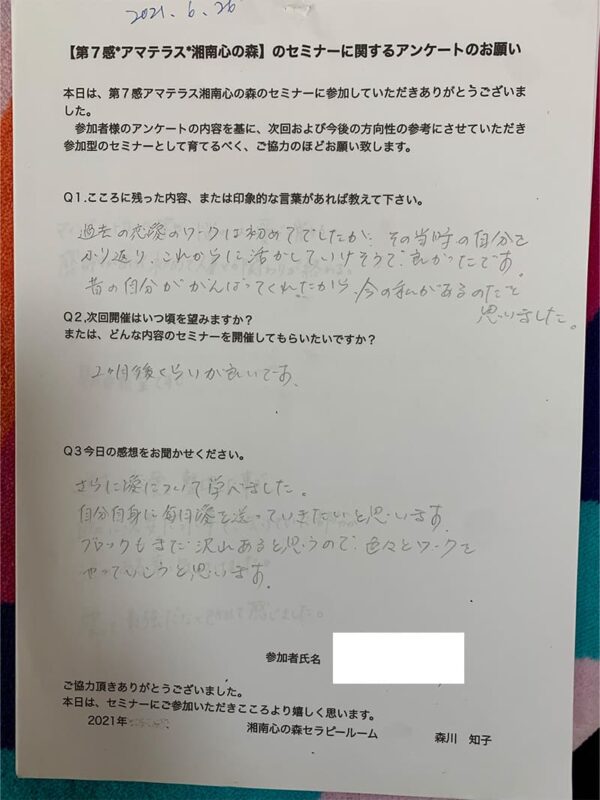 2021.6.26
【第7感*アマテラス*湘南心の森】のセミナーに関するアンケートのお願い
本日は、第７感アマテラス湘南心の森のセミナーに参加していただきありがとうございま
した。
参加者様のアンケートの内容を基に、次回および今後の方向性の参考にさせていただき
参加型のセミナーとして育てるべく、ご協力のほどお願い致します。
Q1.こころに残った内容、または印象的な言葉があれば教えて下さい。
過去の恋愛のワークは初めてでしたが、その当時の自分を
ふり返り、これからに活かしていけそうで、良かったです。
昔の自分ががんばってくれたから、今の私があるのだと
思いました。
Q2,次回開催はいつ頃を望みますか？
または、どんな内容のセミナーを開催してもらいたいですか？
2ヶ月後くらいが良いです。
Q3今日の感想をお聞かせください。
さらに愛について学べました。
自分自身に毎日愛を送っていきたいと思います。
ブロックもまだ沢山あると思うので、色々とワークを
やっていこうと思います。
参加者氏名
ご協力頂きありがとうございました。
本日は、セミナーにご参加いただきこころより嬉しく思います。
2021年
湘南心の森セラピールーム 森川 知子